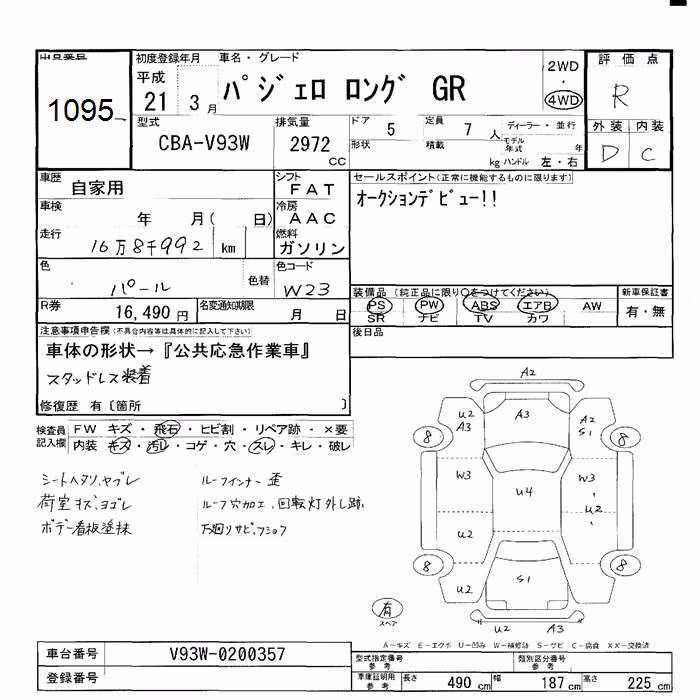 出品番号
1095
初度登録年月
平成
21 3月
車名・グレード
パジェロ ロング GR
2WD
・
4WD
評価点
R
外装 内装
D C
型式
CBA-V93W
排気量
2972
CC
ドア 5
定員 7 人
ディーラー・並行
形状
積載
kg
モデル年式 年
ハンドル 左・右
車歴
自家用
シフト
FAT
セールスポイント(正常に機能するものに限ります)
オークションデビュー!!
車検
年 月( 日)
冷房
AAC
走行
16万8千992 km
燃料
ガソリン
色
パール
色替
色コード
W23
装備品(純正品に限り○をつけてください)
PS PW ABS エアB AW
SR ナビ TV カワ
新車保証書
有・無
R券
16,490円
名変通知期限
月 日
後日品
注意事項申告欄(不具合内容等は具体的に記入して下さい)
車体の形状→『公共応急作業車』
スタッドレス装着
修復歴 有〔箇所 〕
検査員記入欄
FW キズ・飛石・ヒビ割・リペア跡・×要
内装 キズ・汚レ・コゲ・穴・スレ・キレ・破レ
シートヘタリ、ヤブレ
荷室キズ、ヨゴレ
ボデー看板塗抹
ルーフインナー歪
ルーフ穴加工、回転灯外し跡
下廻りサビ、フショク
A2
U2 A3
A3
A2 S1
8
8
W3
U4
W3
U2
U2
8
8
U2
S1
U2
有
スペア
U2 A3
A-キズ E-エクボ U-凹み W-補修跡 S-サビ C-腐食 XX-交換済
車台番号
V93W-0200357
登録番号
型式指定番号
参考
類別区分番号
参考
車庫証明用
参考
長さ 490 cm
幅 187 cm
高さ 225 cm